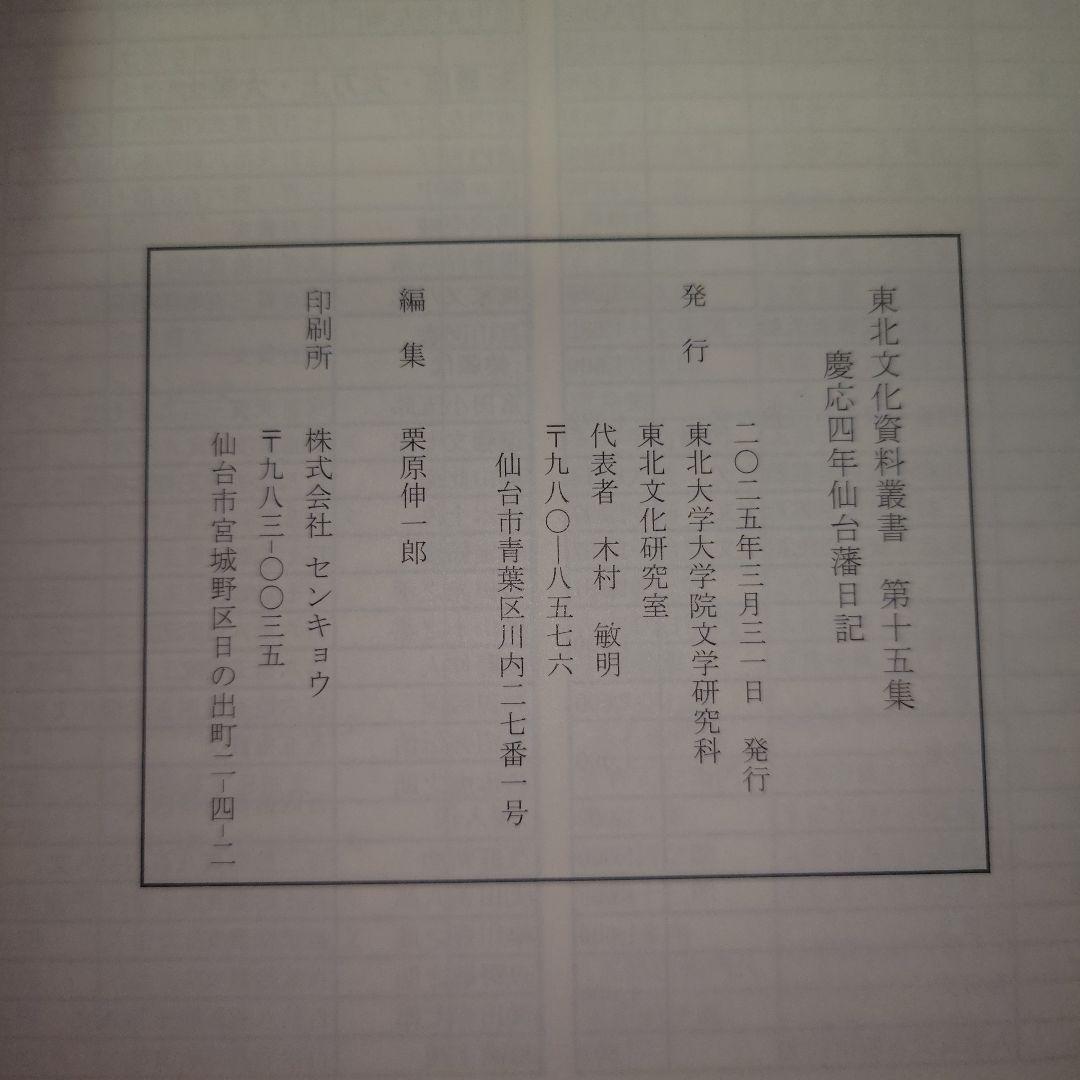 東北文化資料叢書　第十五集
慶応四年仙台藩日記
二〇二五年三月三一日　発行
発　行　東北大学大学院文学研究科
東北文化研究室
代表者　木村　敏明
〒九八〇―八五七六
仙台市青葉区川内二七番一号
編　集　栗原伸一郎
印刷所　株式会社 センキョウ
〒九八三-〇〇三五
仙台市宮城野区日の出町二-四-二